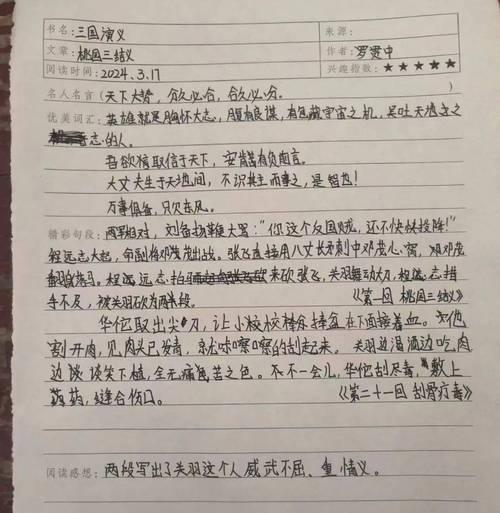 书名:三国演义 来源:
文章:桃园三结义 作者:罗贯中
阅读时间:2024.3.17 兴趣指数:★★★★★
名人名言(天下大势,合久必合,合久必分。)
优美词汇:英雄就是胸怀大志,腹有良谋,有包藏宇宙之机,吴吐天地之
志的人。
吾欲猜取信于天下,安肯 有负南言。
大丈夫生于天地间,不识其主而事之,是 也!
万事俱备,只欠东风。
精彩句段:两军相对,刘备扬鞭大骂:"你这个反国贼,还不快快投降!"
程远志大怒,命副将邓茂出战。张飞直接用八丈长矛刺中邓茂心窝,邓茂
翻身落马。程远志拍马 来砍张飞,关羽舞动大刀,程远志措
手不及,被关羽砍为两段。 《第一回 桃园三结义》
华佗取出尖刀,让小校 捧盆在下面接着血。
割开肉,见肉已发青,就 嚓嚓的刮起来。关羽边渴酒边吃肉
边谈谈笑下植,全无痛 苦之色。不不一会儿,华佗刮尽毒,敷上
药药,缝合伤口。 《第二十一回 刮骨疗毒》
阅读感想:两段写出了关羽这个人威武不屈、重情义。